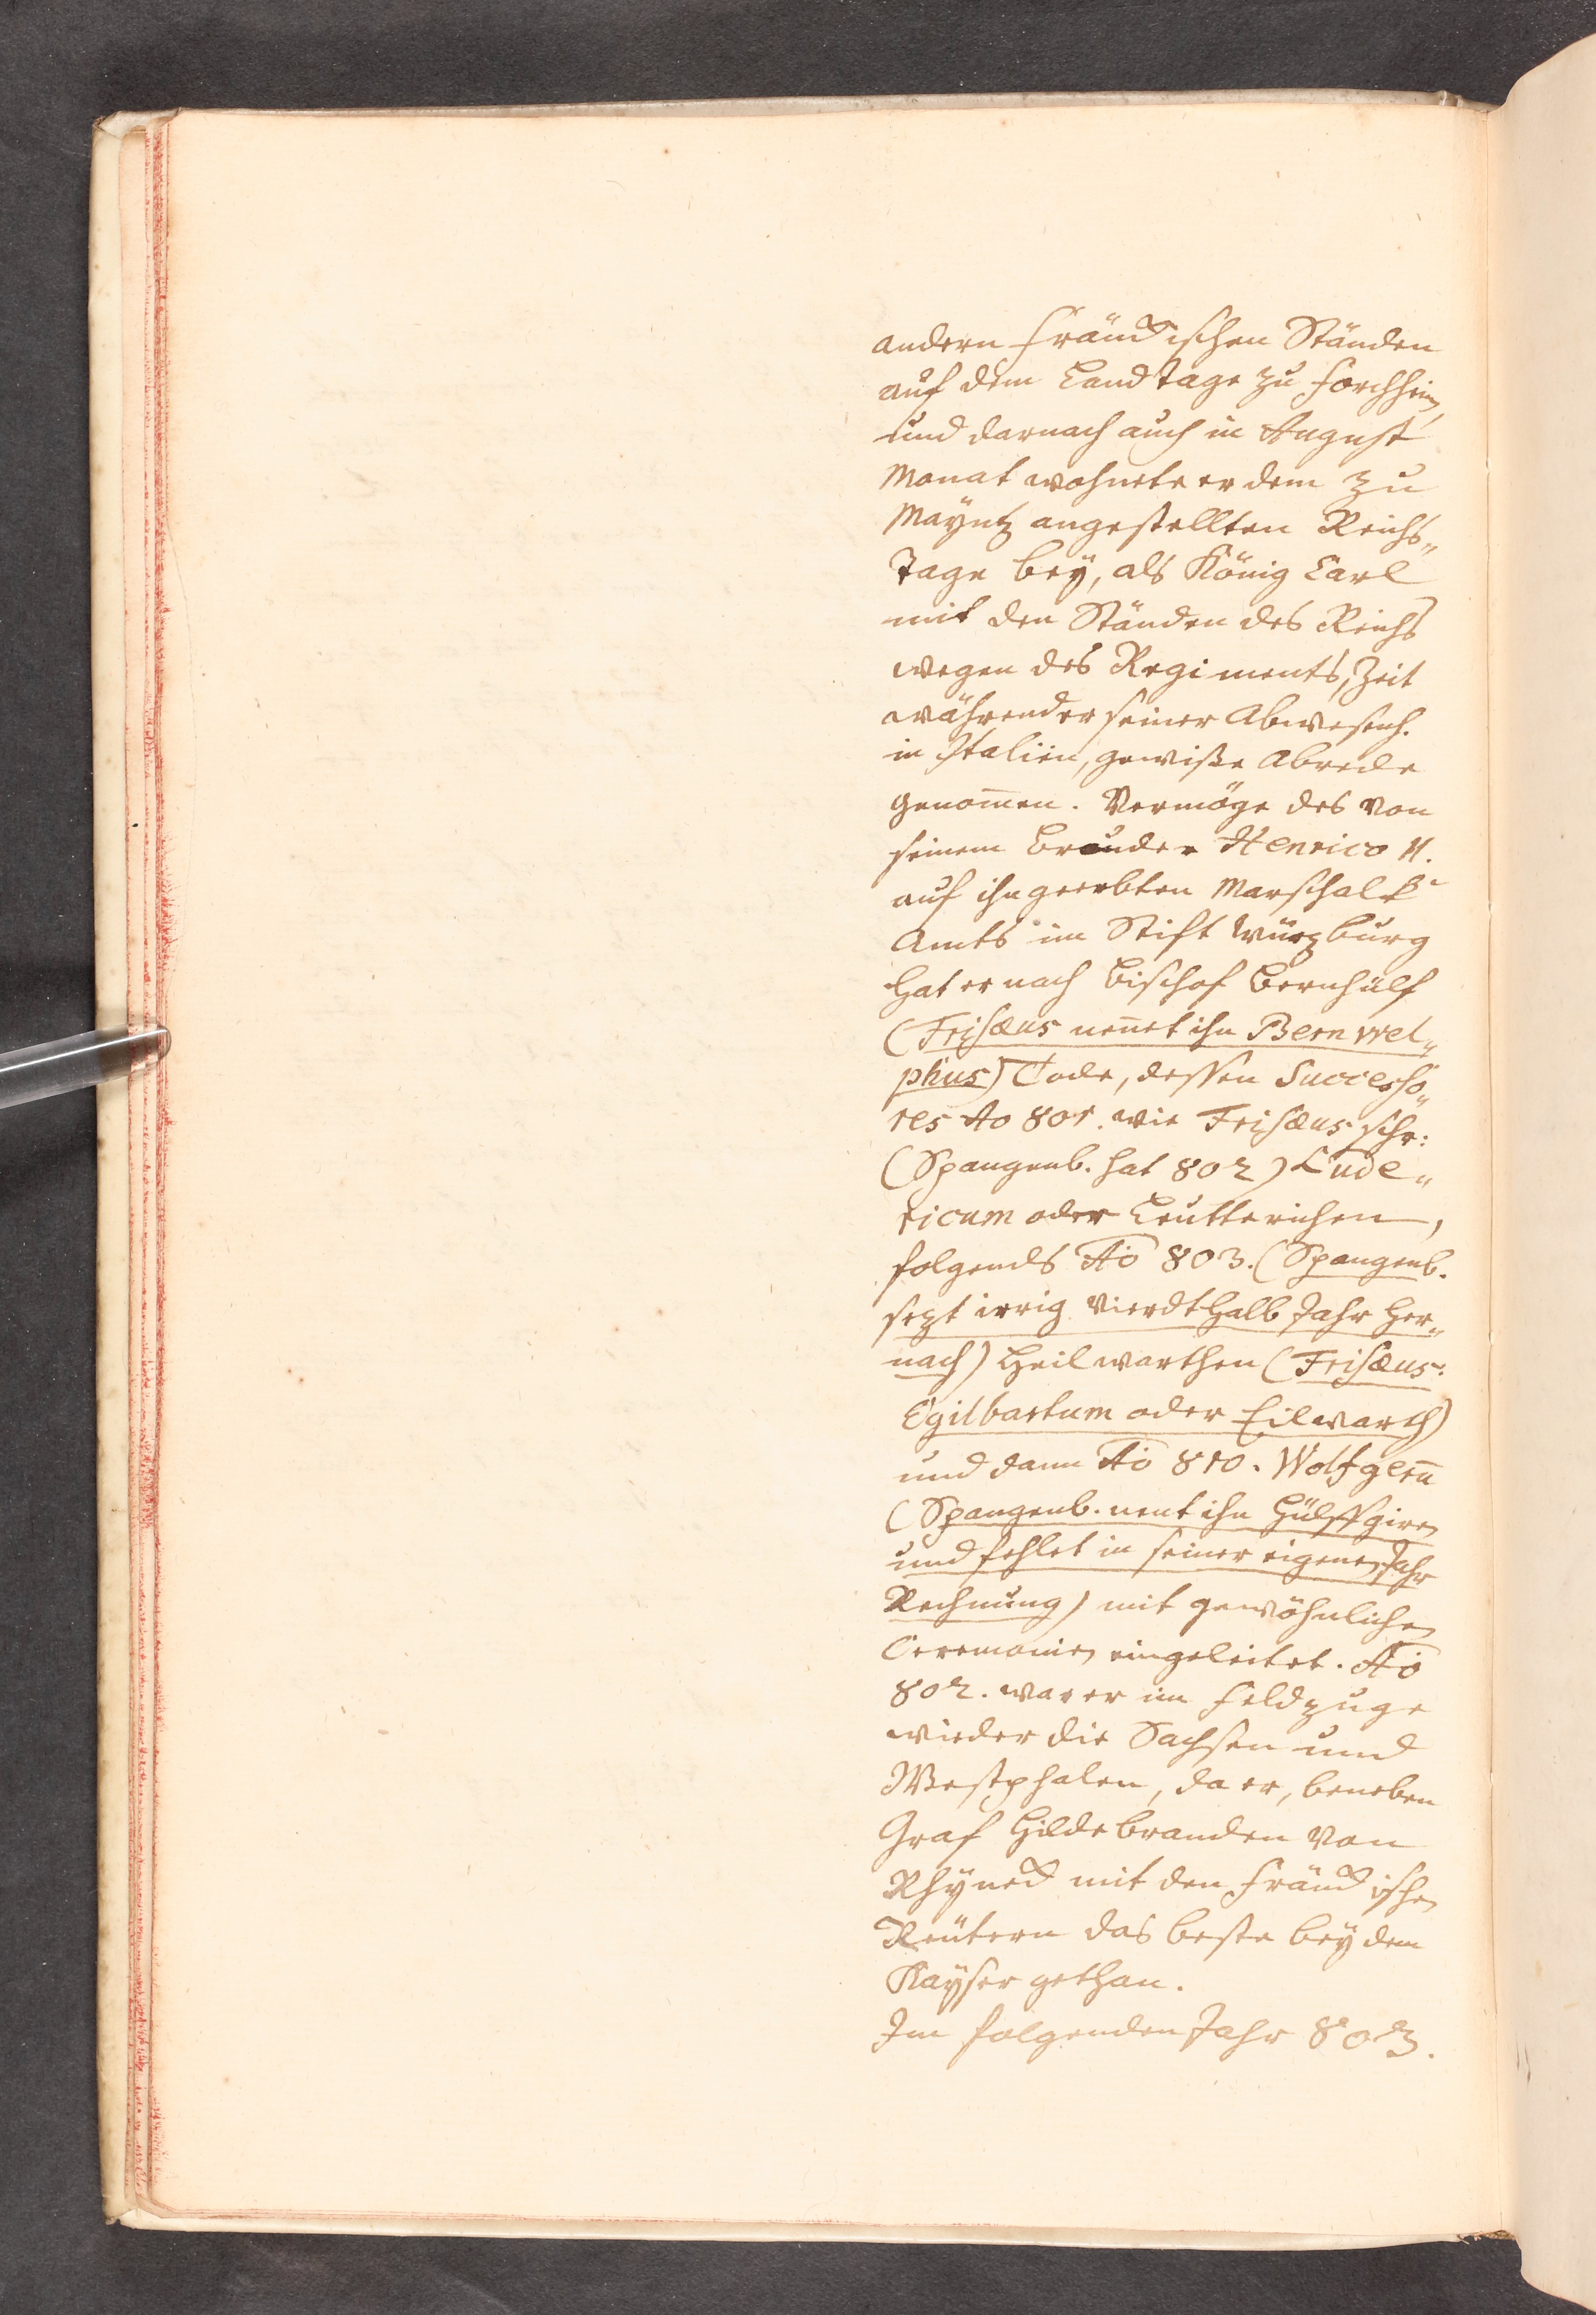 andern Fränckischen Ständen
auf dem Landtage zu Forchheim,
und darnach auch in August
Monat wohnete er dem zu
Mayntz angestellten Reichs„
Tage bey, als König Carl
mit den Ständen des Reichs
wegen des Regiments, Zeit
währender seiner Abwesenh.
in Italien, gewiße Abrede
genom̄en. Vermöge des von
seinem Bruder Henrico II.
auf ihn geerbten Marschalk-
Amts im Stift Würzburg
hat er nach Bischof Bernhülf
(Frisæus nen̄et ihn Bernwel„
phus) Tode, dessen Successo„
res Ao 801. wie Frisæus schr:
(Spangenb. hat 802) Lude„
ricum oder Leutterichen,
folgends Ao 803. (Spangenb.
sezt irrig vierdthalb Jahr her„
nach) Heilwarthen (Frisæus:
Egilbartum oder Eilwarth)
und dann Ao 810. Wolfgern̄
(Spangenb. nent ihn Hülffgiren
und fehlet in seiner eigenen Jahr
Rechnung) mit gewöhnlichen
Ceremonien eingeleitet. Ao
802. war er im Feldzuge
wieder die Sachsen und
Westphalen, da er, beneben
Graf Hildebranden von
Rhyneck mit den Fränckischen
Reütern das beste bey dem
Kayser gethan.
Im folgenden Jahr 803.